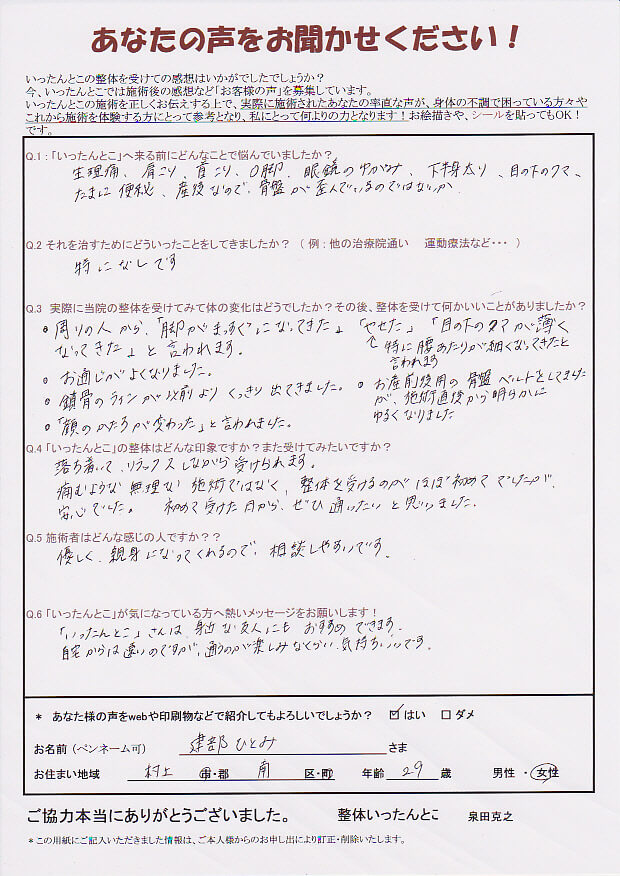 あなたの声をお聞かせください！
いったんとこの整体を受けての感想はいかがでしたでしょうか？
今、いったんとこでは施術後の感想など「お客様の声」を募集しています。
いったんとこの施術を正しくお伝えする上で、実際に施術されたあなたの率直な声が、身体の不調で困っている方々や
これから施術を体験する方にとって参考となり、私にとって何よりの力となります！お絵描きや、シールを貼ってもOK！
です。
Q.1：「いったんとこ」へ来る前にどんなことで悩んでいましたか？
生理痛、肩こり、首こり、O脚、眼鏡のゆがみ、下半身太り、目の下のクマ、
たまに便秘、産後なので、骨盤が歪んでいるのではないか
Q.2 それを治すためにどういったことをしてきましたか？（ 例：他の治療院通い　運動療法など・・・ ）
特になしです
Q.3 実際に当院の整体を受けてみて体の変化はどうでしたか？その後、整体を受けて何かいいことがありましたか？
・周りの人から、「脚がまっすぐになってきた」「やせた」「目の下のクマが薄く
なってきた」と言われます。
↑特に腰あたりが細くなってきたと
言われます
・お通じがよくなりました。
・鎖骨のラインが以前よりくっきり出てきました。
・「顔のかたちが変わった」と言われました。
・お産前後用の骨盤ベルトをしてました
が、施術直後から明らかに
ゆるくなりました
Q.4 「いったんとこ」の整体はどんな印象ですか？また受けてみたいですか？
落ち着いて、リラックスしながら受けられます。
痛むような無理な施術ではなく、整体を受けるのがほぼ初めてでしたが、
安心でした。 初めて受けた日から、ぜひ通いたいと思いました。
Q.5 施術者はどんな感じの人ですか？？
優しく、親身になってくれるので、相談しやすいです。
Q.6 「いったんとこ」が気になっている方へ熱いメッセージをお願いします！
「いったんとこ」さんは、身近な友人にもおすすめできます。
自宅からは遠いのですが、通うのが楽しみなくらい気持ちいいです。
＊ あなた様の声をwebや印刷物などで紹介してもよろしいでしょうか？ ☑はい □ダメ
お名前（ペンネーム可） 建部ひとみ さま
お住まい地域 村上 市・郡 南 区・町 年齢 29 歳 男性 ・ 女性
ご協力本当にありがとうございました。 整体いったんとこ 泉田克之
＊この用紙にご記入いただきました情報は、ご本人様からのお申し出により訂正・削除いたします。